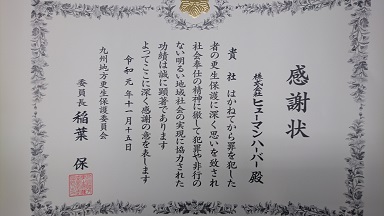 感謝状
株式会社ヒューマンハーバー 殿
貴社はかねてから罪を犯した
者の更生保護に深く思いを致され
社会奉仕の精神に徹して犯罪や非行の
ない明るい地域社会の実現に協力された
功績は誠に顕著であります
よってここに深く感謝の意を表します
令和元年十一月十五日
九州地方更生保護委員会
委員長 稲葉 保